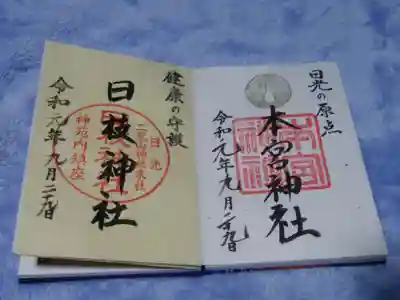 日光の原点
本宮神社
令和元年九月二十九日
健康の守護
日枝神社
令和元年九月二十九日
日光
二荒山神社末社
神苑内鎮座
本宮
神社